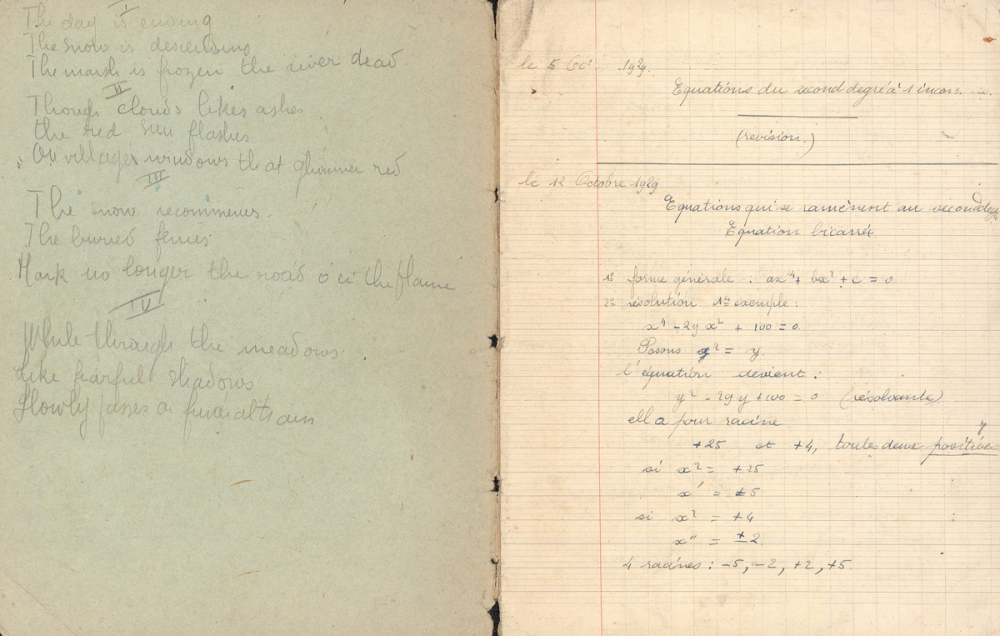 I
The day is ending
The snow is descending
The marsh is frozen the river dead
II
Though clouds likes ashes
the red sun flashes
On villages windows that glimmer red
III
The snow recommences
The buried fences
Mark no longer the road o'er the
IV
While through the meadows
Like fearful shadows
Slowly passes a funeral train
le 5 Oct 1929.
Equations du second degré à 1 incon.
(révision.)
le 12 Octobre 1929
Equations qui se ramènent au second
Equation bicarrée
1º forme générale : ax⁴ + bx² + c = 0
2º résolution 1er exemple :
x⁴ - 29 x² + 100 = 0
Posons x² = y.
l'équation devient :
y² - 29 y + 100 = 0 (résolvante)
ell a pour racine
+25 et +4, toutes deux positives
si x² = +25
x' = ±5
si x² = +4
x" = ±2
4 racines : -5, -2, +2, +5.